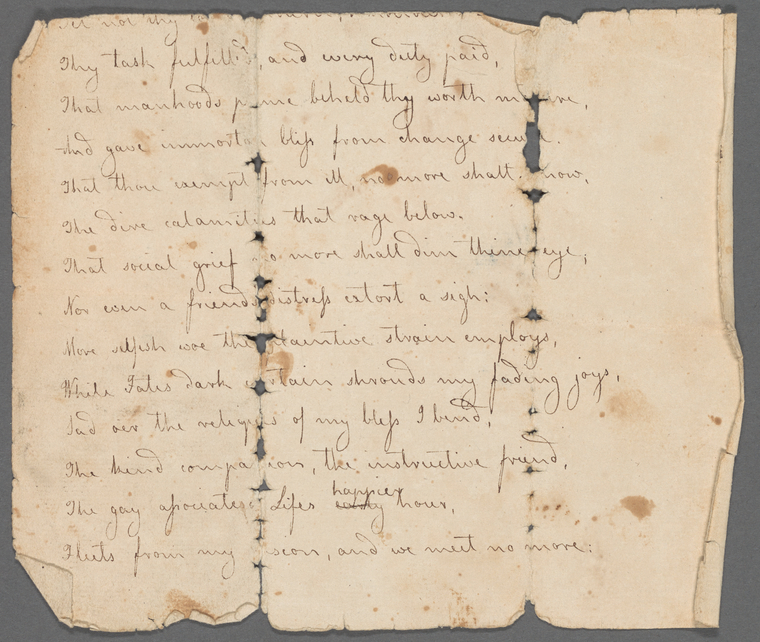 not thy
Thy task fulfill'd, and every duty paid,
That manhoods p me beheld thy worth m re,
And gave immorta bliss from change secu e.
That thou exempt from ill, no more shall now,
The dire calamities that rage below.
That social grief o more shall dim thine eye,
Nor even a friends distress extort a sigh:
More selfish woe the laintive strain employs,
While Fates dark c rtain shrouds my fading joys,
Sad oer the reliques of my bless I bend,
The kind compa ion, the instructive friend,
The gay associates Lifes happier hour,
Fleets from my ision, and we meet no more: